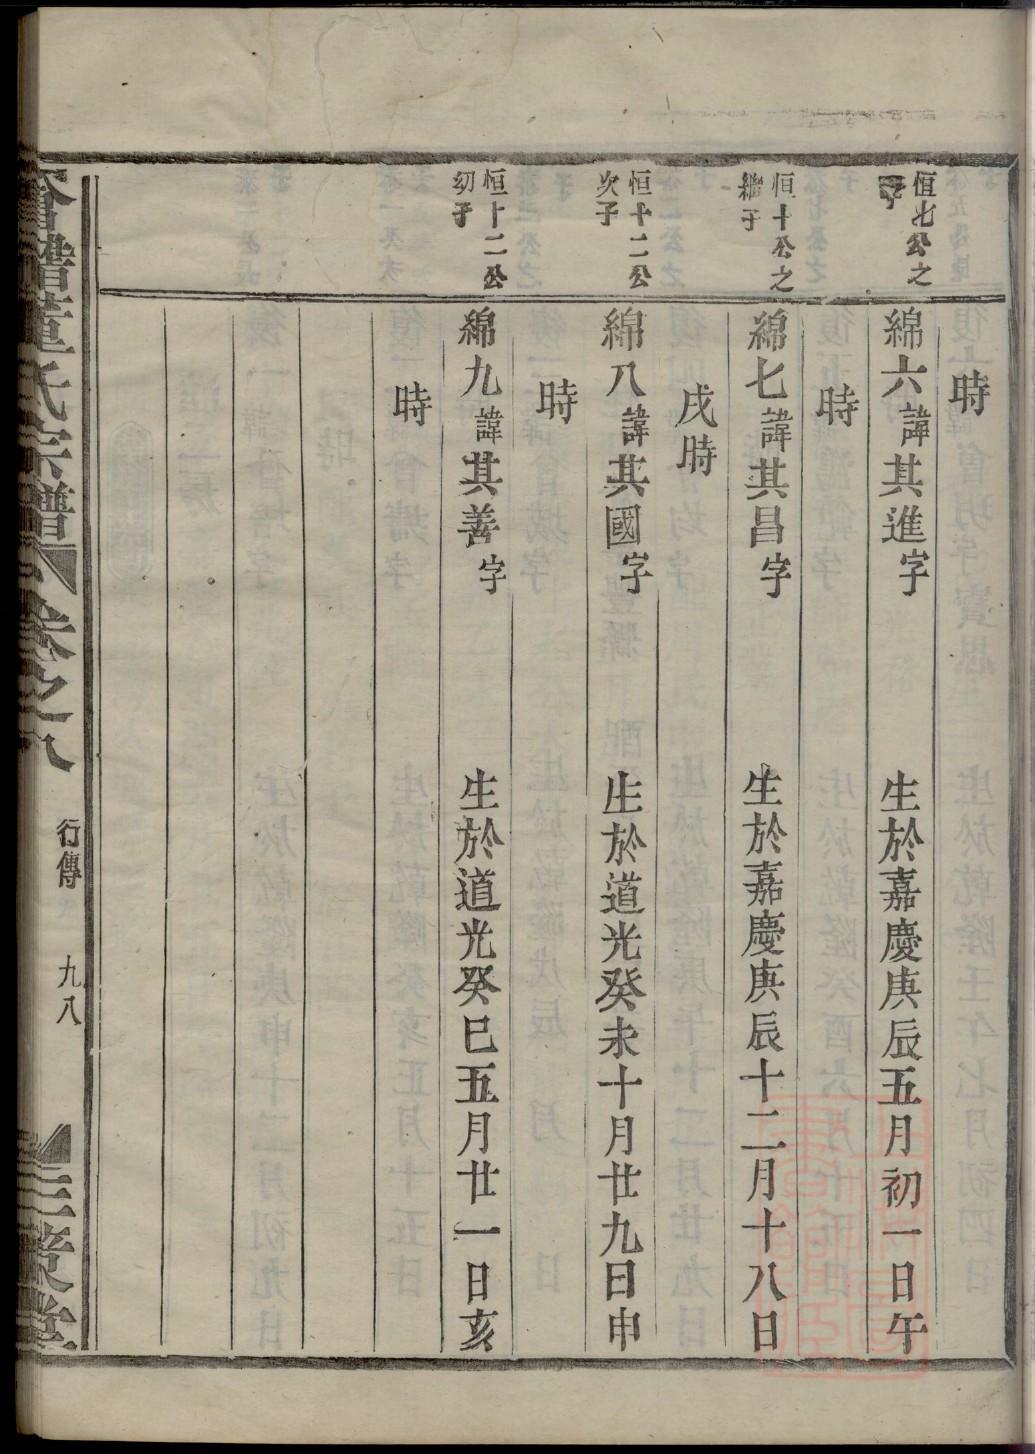 時
恒七公之
子
綿六諱其進字 生於嘉慶庚辰五月初一日午
時
恒十公之
繼子
綿七諱其昌字 生於嘉慶庚辰十二月十八日
戌時
恒十二公
次子
綿八諱其國字 生於道光癸未十月廿九日申
時
恒十二公
幼子
綿九諱其善字 生於道光癸巳五月廿一日亥
時
董氏宗譜 卷之八 行傳 九八 三策堂